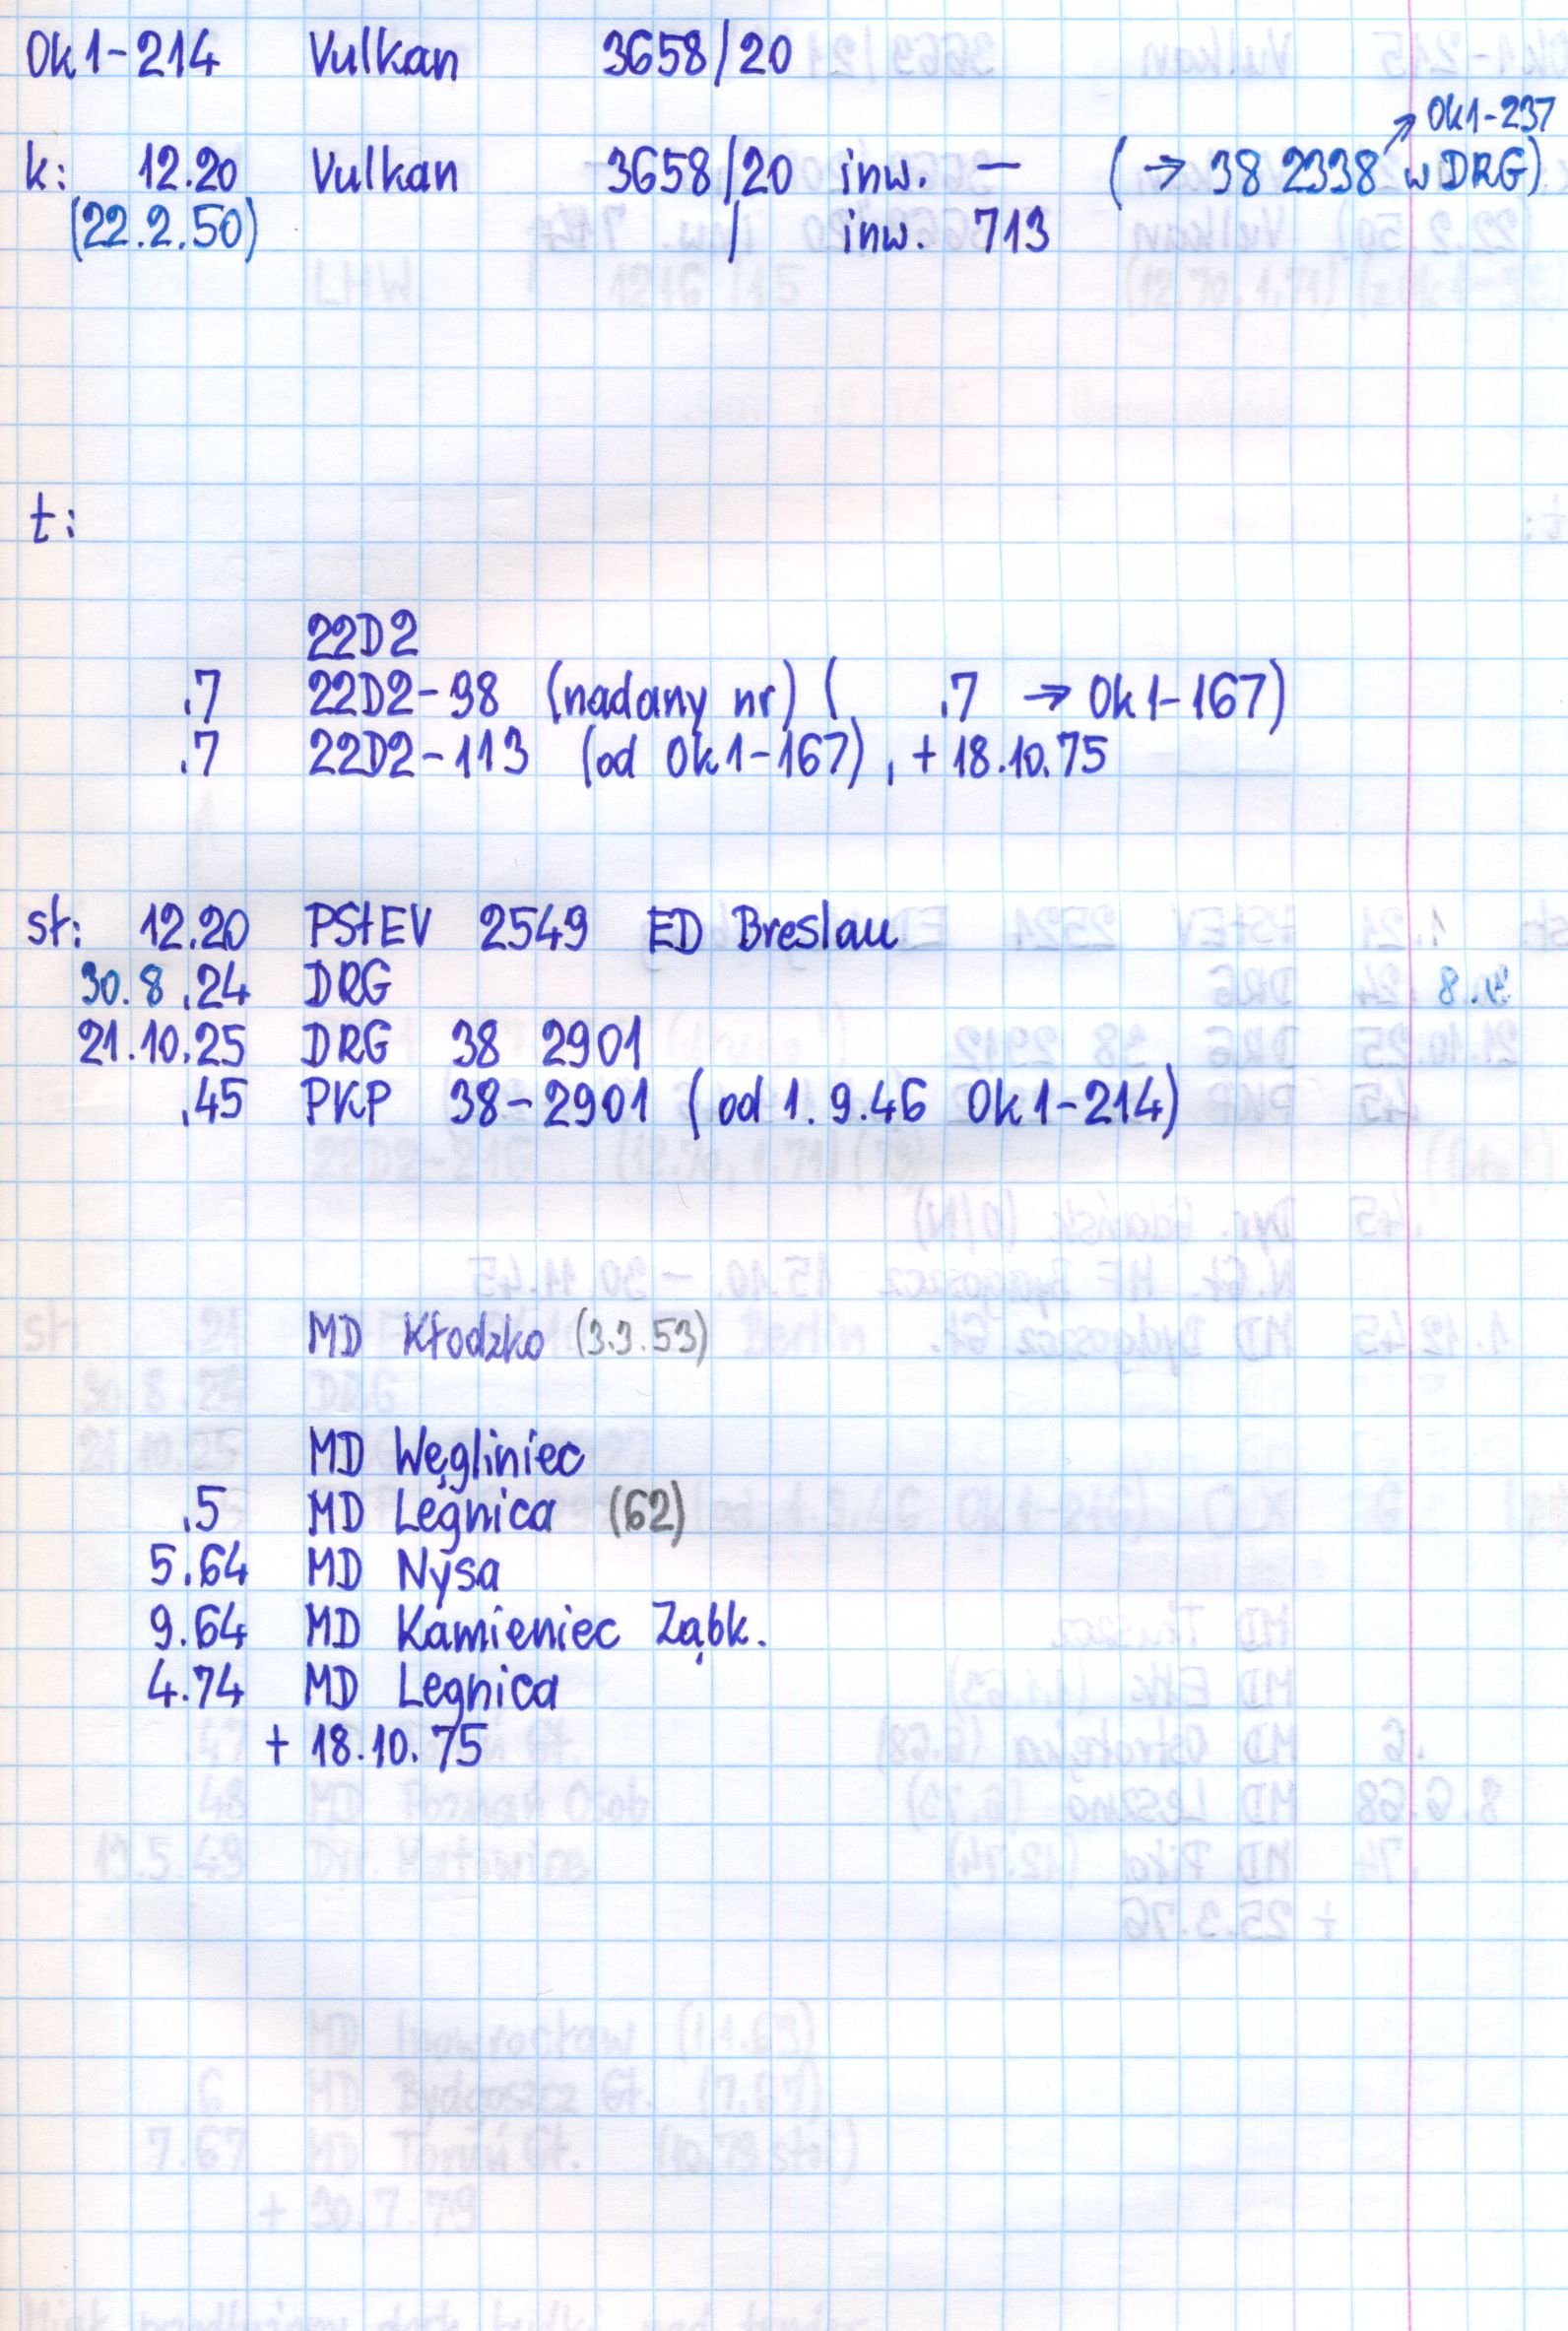 Ok1-214 Vulkan 3658/20
Ok1-237
k: 12.20 Vulkan 3658/20 inw. — (→ 38 2338 w DRG)
(22.2.50) / inw. 713
t:
22D2
.7 22D2-98 (nadany nr) ( .7 → Ok1-167)
.7 22D2-113 (od Ok1-167), + 18.10.75
st: 12.20 PStEV 2549 ED Breslau
30.8.24 DRG
21.10.25 DRG 38 2901
.45 PKP 38-2901 (od 1.9.46 Ok1-214)
MD Kłodzko (3.3.53)
MD Węgliniec
.5 MD Legnica (62)
5.64 MD Nysa
9.64 MD Kamieniec Ząbk.
4.74 MD Legnica
+ 18.10.75